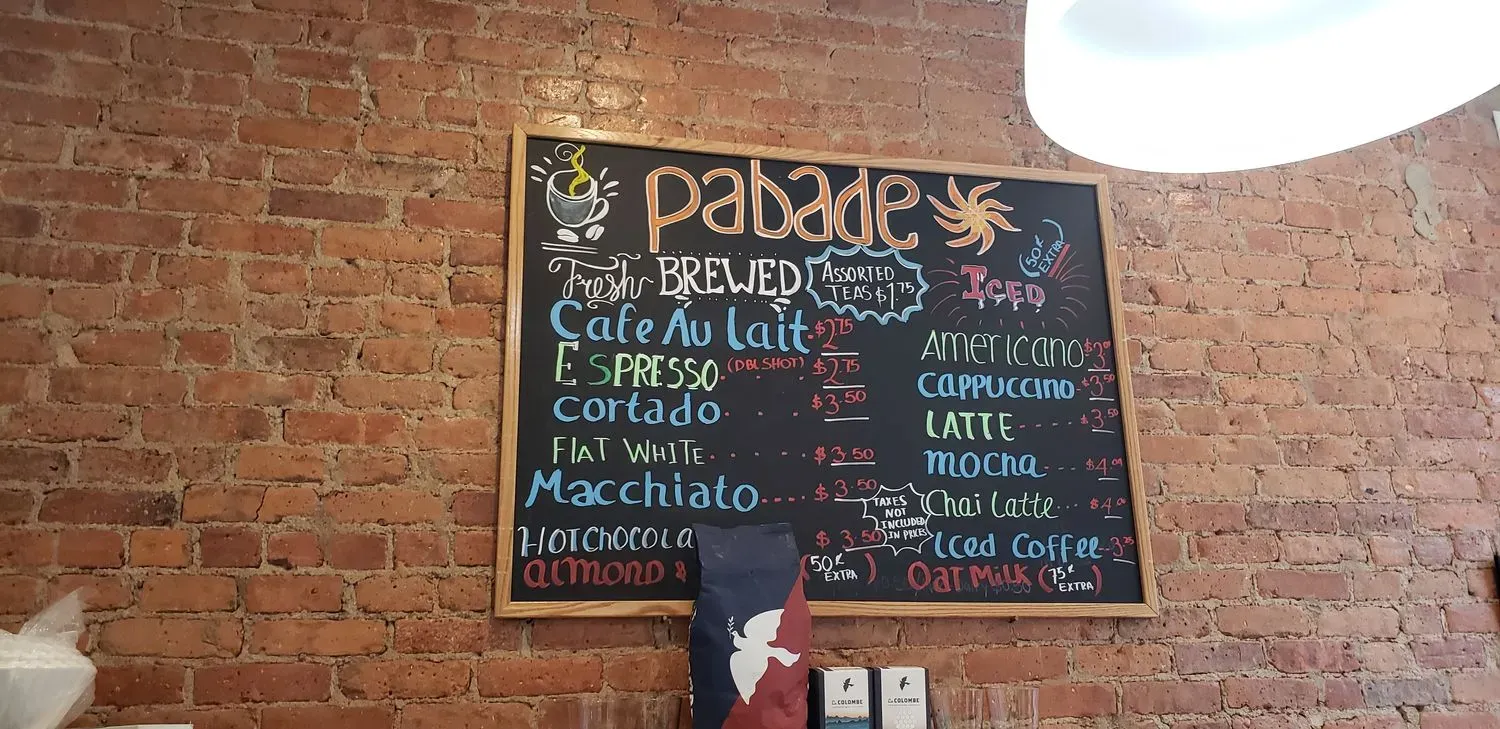 pabade
Fresh BREWED
ASSORTED
TEAS $1.75
Cafe Au Lait. $2.75
ESPRESSO. (DBL SHOT) $2.75
cortado. . . . $3.50
FLAT WHITE. . . . . $3.50
Macchiato.... $3.50
HOTCHOCOLA $3.50
ALMOND & (50¢ EXTRA)
50¢
EXTRA
ICED
AMERICANO $3.00
CAPPUCCINO $3.50
LATTE ---- $3.50
mocha --- $4.00
Chai Latte... $4.00
Iced Coffee -- 3.25
OAT MILK (75¢ EXTRA)
TAXES
NOT
INCLUDED
IN PRICES
La COLOMBE
La COLOMBE